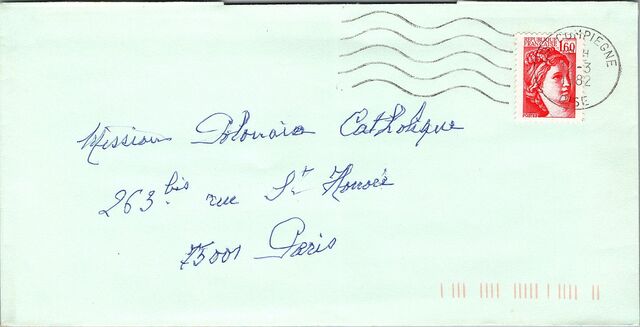 COMPIEGNE
REPUBLIQUE
FRANCAISE
1,60
-3
82
Mission Polonaise Catholique
263 bis rue St Honoré
75001 Paris